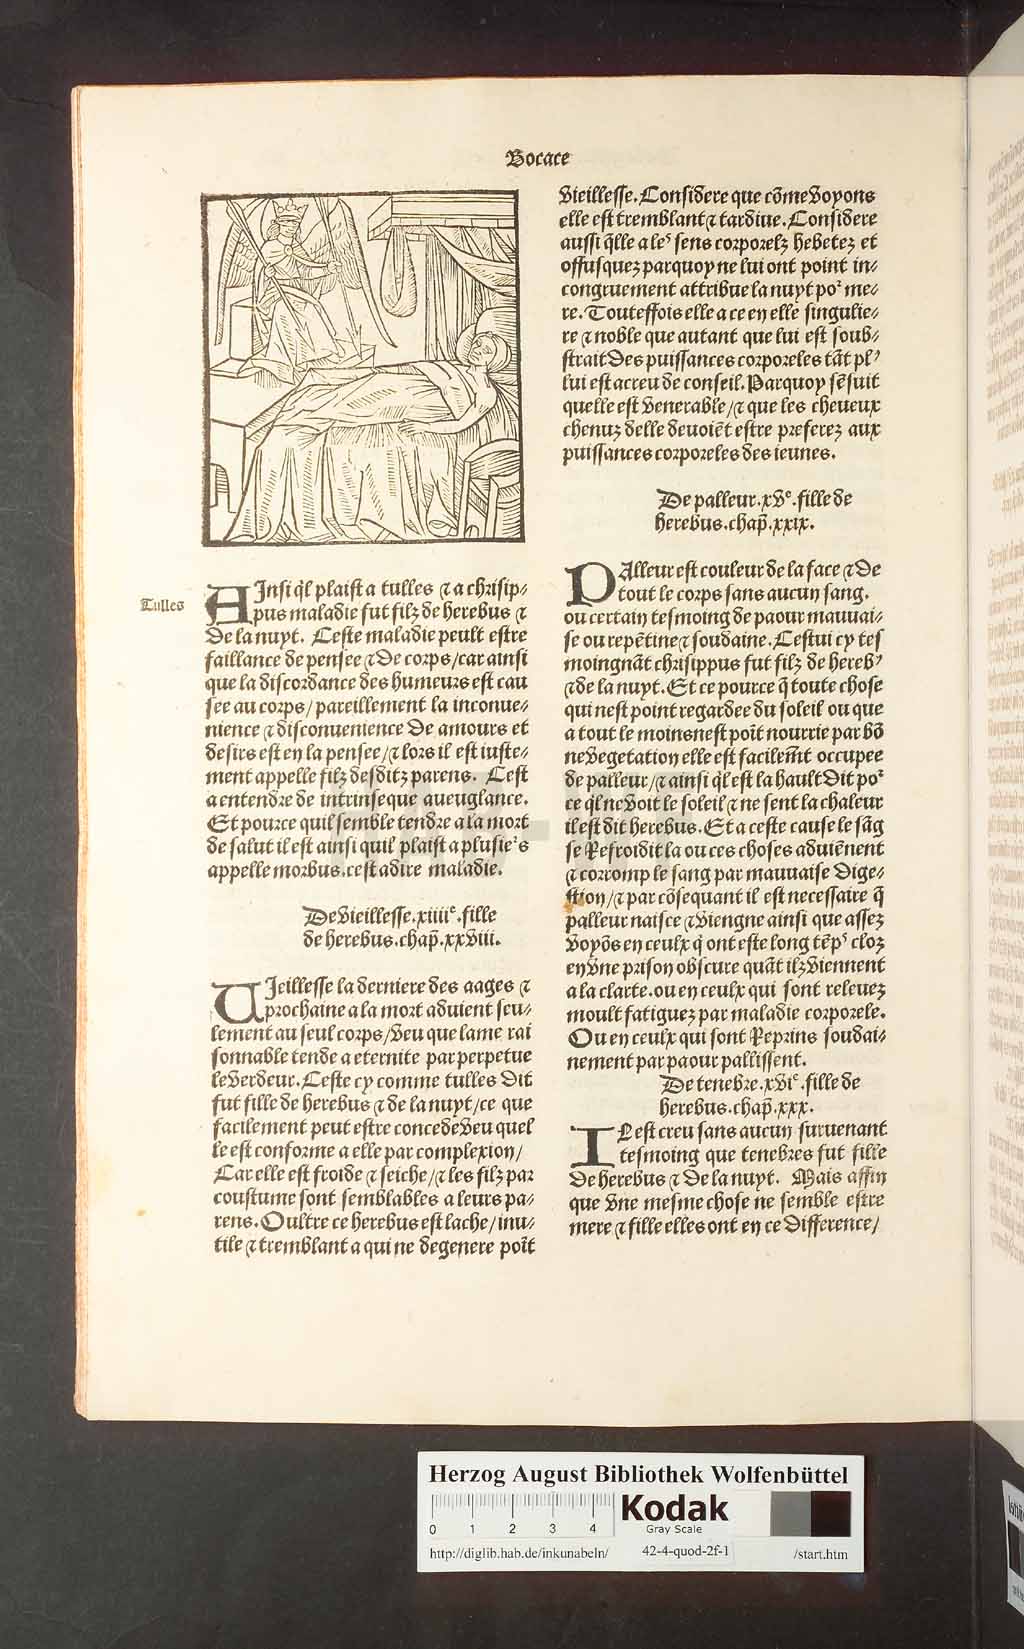 Bocace
Tulles
AInsi q̃l plaist a tulles ⁊ a chrisip⸗
pus maladie fut filz de herebus ⁊
De la nuyt. Ceste maladie peult estre
faillance de pensee ⁊ De corps/car ainsi
que la discordance des humeurs est cau
see au corps/pareillement la inconue⸗
nience ⁊ disconuenience De amours et
desirs est en la pensee/⁊ lors il est iuste⸗
ment appelle filz desditz parens. Cest
a entendre de intrinseque aueuglance.
Et pource quil semble tendre a la mort
de salut il est ainsi quil plaist a plusieᷣs
appelle morbus.cest adire maladie.
De vieillesse.xiiiiᵉ.fille
de herebus.chap̃.xxviii.
UIeillesse la derniere des aages ⁊
prochaine a la mort aduient seu⸗
lement au seul corps/veu que lame rai
sonnable tende a eternite par perpetue
le verdeur. Ceste cy comme tulles Dit
fut fille de herebus ⁊ de la nuyt/ce que
facilement peut estre concede veu quel
le est conforme a elle par complexion/
Car elle est froide ⁊ seiche/⁊ les filz par
coustume sont semblables a leurs pa⸗
rens. Oultre ce herebus est lache/inu⸗
tile ⁊ tremblant a qui ne degenere poĩt
vieillesse. Considere que cõme voyons
elle est tremblant ⁊ tardiue. Considere
aussi q̃lle a leˢ sens corporelz hebetez et
offusquez parquoy ne lui ont point in⸗
congruement attribue la nuyt poᷣ me⸗
re. Touteffois elle a ce en elle singulie⸗
re ⁊ noble que autant que lui est soub⸗
strait Des puissances corporeles tãt plꝰ
lui est acreu de conseil. Parquoy sẽsuit
quelle est venerable/⁊ que les cheueux
chenuz delle deuoiẽt estre preferez aux
puissances corporeles des ieunes.
De palleur.xvᵉ.fille de
herebus.chap̃.xxix.
PAlleur est couleur de la face ⁊ De
tout le corps sans aucun sang.
ou certain tesmoing de paour mauuai⸗
se ou repẽtine ⁊ soudaine. Cestui cy tes
moingnãt chrisippus fut filz de herebꝰ
⁊ de la nuyt. Et ce pource q̃ toute chose
qui nest point regardee du soleil ou que
a tout le moins nest poĩt nourrie par bõ
ne vegetation elle est facilem̃t occupee
de palleur/⁊ ainsi q̃l est la hault Dit poᷣ
ce q̃l ne voit le soleil ⁊ ne sent la chaleur
il est dit herebus. Et a ceste cause le sãg
se Refroidit la ou ces choses aduiẽnent
⁊ corromp le sang par mauuaise Dige⸗
stion/⁊ par cõsequant il est necessaire q̃
palleur naisce ⁊ viengne ainsi que assez
voyõs en ceulx q̃ ont este long tẽpˢ cloz
en vne prison obscure quãt ilz viennent
a la clarte.ou en ceulx qui sont releuez
moult fatiguez par maladie corporele.
Ou en ceulx qui sont Reprins soudai⸗
nement par paour pallissent.
De tenebre.xviᵉ.fille de
herebus.chap̃.xxx.
IL est creu sans aucun suruenant
tesmoing que tenebres fut fille
de herebus ⁊ De la nuyt. Mais affin
que vne mesme chose ne semble estre
mere ⁊ fille elles ont en ce Difference/
Herzog August Bibliothek Wolfenbüttel
0 1 2 3 4
Kodak
Gray Scale
http://diglib.hab.de/inkunabeln/ 42-4-quod-2f-1 /start.htm